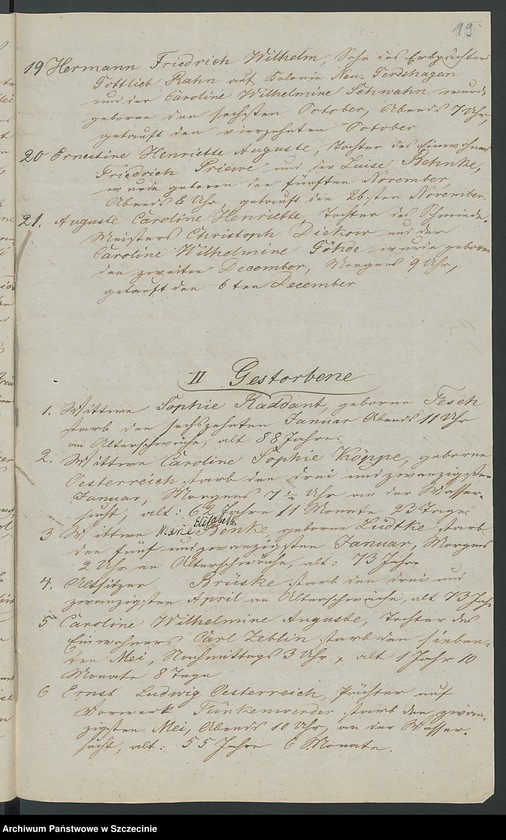 19
19 Hermann Friedrich Wilhelm, Sohn des Erbpächters
Gottlieb Rahn auf Kolonie Neu
und der Caroline Wilhelmine wurde
geboren den sechsten October, Abends 7 Uhr,
getauft den vierzehnten October
20 Ernestine Henriette Auguste, Tochter des Einwohners
Friedrich Priewe und der Luise Behnke,
wurde geboren den fünften November,
Abends 8 Uhr getauft den 26sten November.
21. Auguste Caroline Henriette, Tochter des Schmiede-
Meisters Christoph Dickow und der
Caroline Wilhelmine wurde geboren
den zweiten December, Morgens 9 Uhr,
getauft den 6ten December
II Gestorbene
1. Wittwe Sophie Raddant, geborne Tesch
starb den sechszehnten Januar Abends 11 Uhr
an Altersschwäche, alt 88 Jahre.
2. Wittwe Caroline Sophie Köppe, geborne
Oesterreich starb den drei und zwanzigsten
Januar, Morgens 7½ Uhr an der Wasser-
sucht, alt: Jahre 11 Monate 23 Tage
3 Wittwe Marie Elisabeth geborne Lüdtke starb
den fünf und zwanzigsten Januar, Morgens
2 Uhr an Altersschwäche, alt: 73 Jahr
4. Altsitzer Brüske starb den drei und
zwanzigsten April an Altersschwäche, alt 73 Jahr
5 Caroline Wilhelmine Auguste, Tochter des
Einwohners Carl Zeblin starb den sieben-
ten Mei, Nachmittags 3 Uhr, alt 1 Jahr 10
Monate 8 Tage
6 Ernst Ludwig Oesterreich, Pächter auf
Vorwerk starb den zwan-
zigsten Mei, Abends 10 Uhr, an der Wasser-
sucht, alt: 55 Jahre 6 Monate.
Archiwum Państwowe w Szczecinie